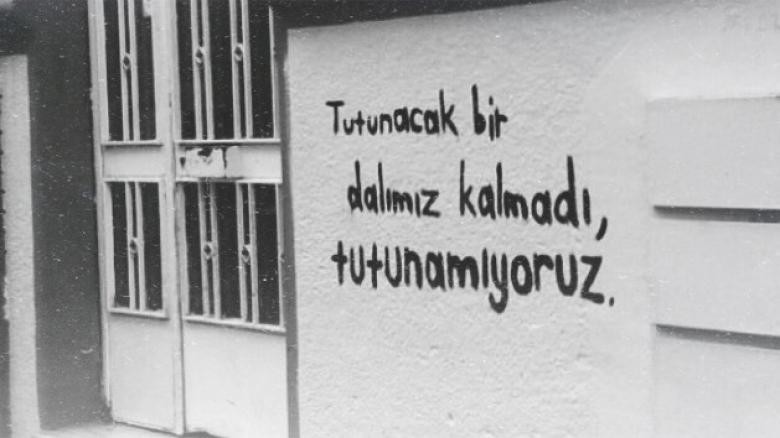 Tutunacak bir
dalımız kalmadı,
tutunamıyoruz.